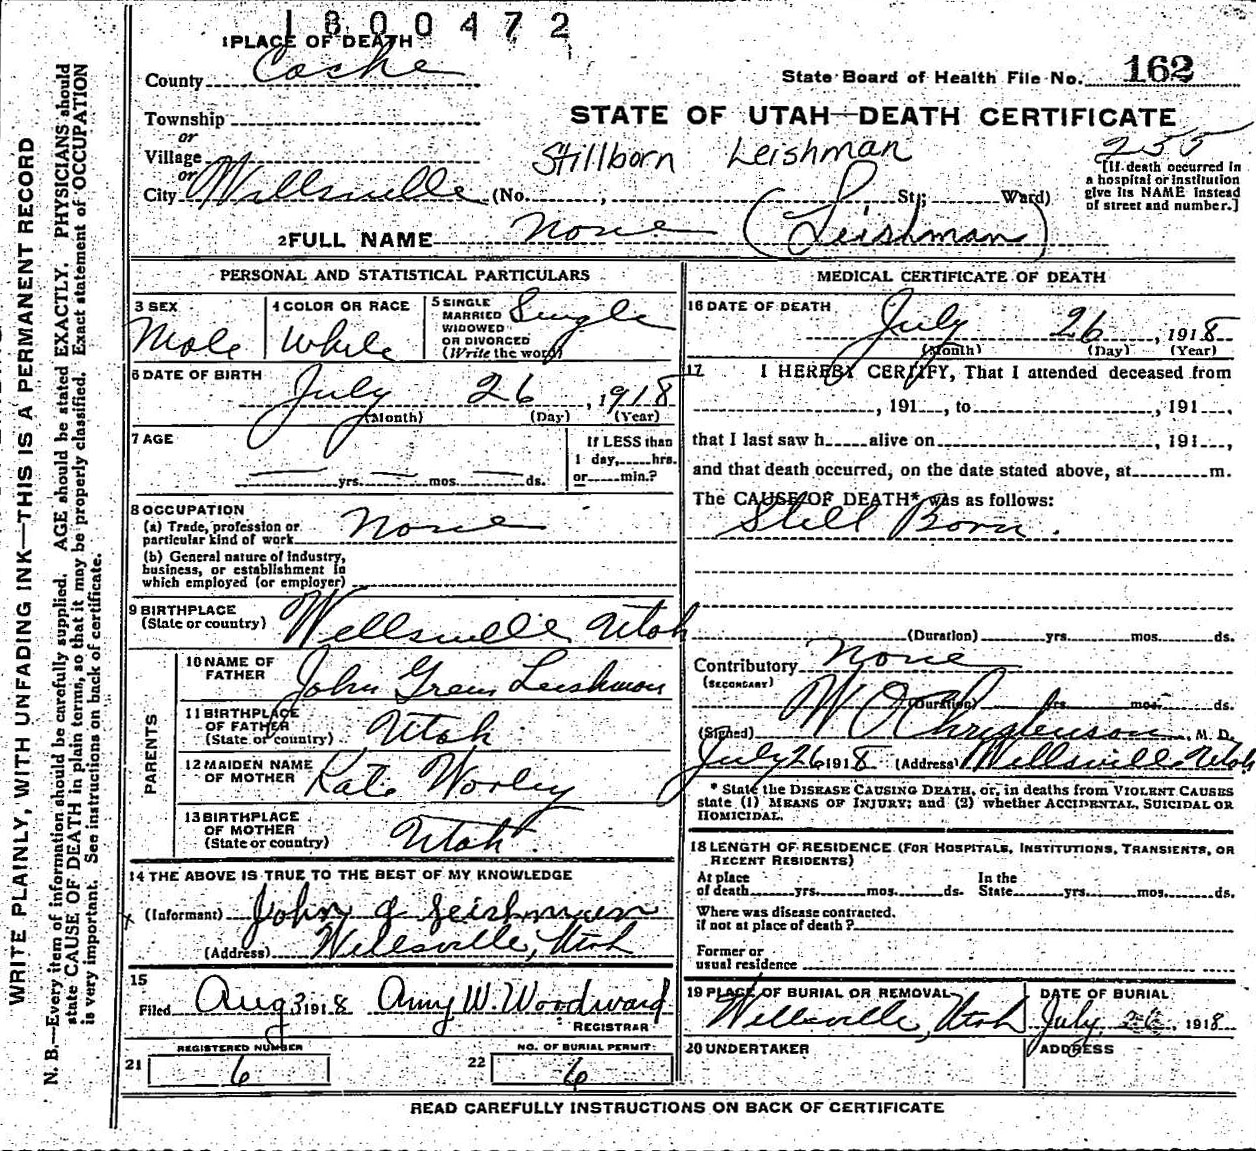 1800472
1 PLACE OF DEATH
County Cache
State Board of Health File No. 162
Township
or
STATE OF UTAH—DEATH CERTIFICATE
Village
or
Stillborn Leishman 255
City Wellsville (No. , St.; Ward)
[If death occurred in
a hospital or institution
give its NAME instead
of street and number.]
2 FULL NAME None (Leishman)
PERSONAL AND STATISTICAL PARTICULARS
3 SEX
Male
4 COLOR OR RACE
White
5 SINGLE
MARRIED
WIDOWED
OR DIVORCED
(Write the word)
Single
6 DATE OF BIRTH
July 26, 1918
(Month) (Day) (Year)
7 AGE
yrs. mos. ds.
If LESS than
1 day, hrs.
or min.?
8 OCCUPATION
(a) Trade, profession or
particular kind of work None
(b) General nature of industry,
business, or establishment in
which employed (or employer)
9 BIRTHPLACE
(State or country) Wellsville Utah
PARENTS
10 NAME OF
FATHER John Green Leishman
11 BIRTHPLACE
OF FATHER
(State or country) Utah
12 MAIDEN NAME
OF MOTHER Kate Worley
13 BIRTHPLACE
OF MOTHER
(State or country) Utah
14 THE ABOVE IS TRUE TO THE BEST OF MY KNOWLEDGE
x (Informant) John G Leishman
(Address) Wellsville, Utah
15
Filed Aug 3 1918 Amy W. Woodward
REGISTRAR
21 REGISTERED NUMBER
6
22 NO. OF BURIAL PERMIT
6
MEDICAL CERTIFICATE OF DEATH
16 DATE OF DEATH
July 26, 1918
(Month) (Day) (Year)
17 I HEREBY CERTIFY, That I attended deceased from
, 191 , to , 191 ,
that I last saw h alive on , 191 ,
and that death occurred, on the date stated above, at m.
The CAUSE OF DEATH* was as follows:
Still Born.
(Duration) yrs. mos. ds.
Contributory None
(SECONDARY)
(Duration) yrs. mos. ds.
(Signed) W. O. Christenson, M. D.
July 26 1918 (Address) Wellsville Utah
* State the DISEASE CAUSING DEATH, or, in deaths from VIOLENT CAUSES
state (1) MEANS OF INJURY; and (2) whether ACCIDENTAL, SUICIDAL OR
HOMICIDAL.
18 LENGTH OF RESIDENCE (FOR HOSPITALS, INSTITUTIONS, TRANSIENTS, OR
RECENT RESIDENTS)
At place
of death yrs. mos. ds.
In the
State yrs. mos. ds.
Where was disease contracted,
if not at place of death?
Former or
usual residence
19 PLACE OF BURIAL OR REMOVAL
Wellsville, Utah
DATE OF BURIAL
July 26 1918
20 UNDERTAKER
ADDRESS
READ CAREFULLY INSTRUCTIONS ON BACK OF CERTIFICATE
WRITE PLAINLY, WITH UNFADING INK—THIS IS A PERMANENT RECORD
N. B.—Every item of information should be carefully supplied. AGE should be stated EXACTLY. PHYSICIANS should
state CAUSE OF DEATH in plain terms, so that it may be properly classified. Exact statement of OCCUPATION
is very important. See instructions on back of certificate.